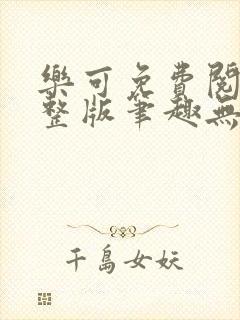 樂可免費閱
整版筆趣無
千島女妖